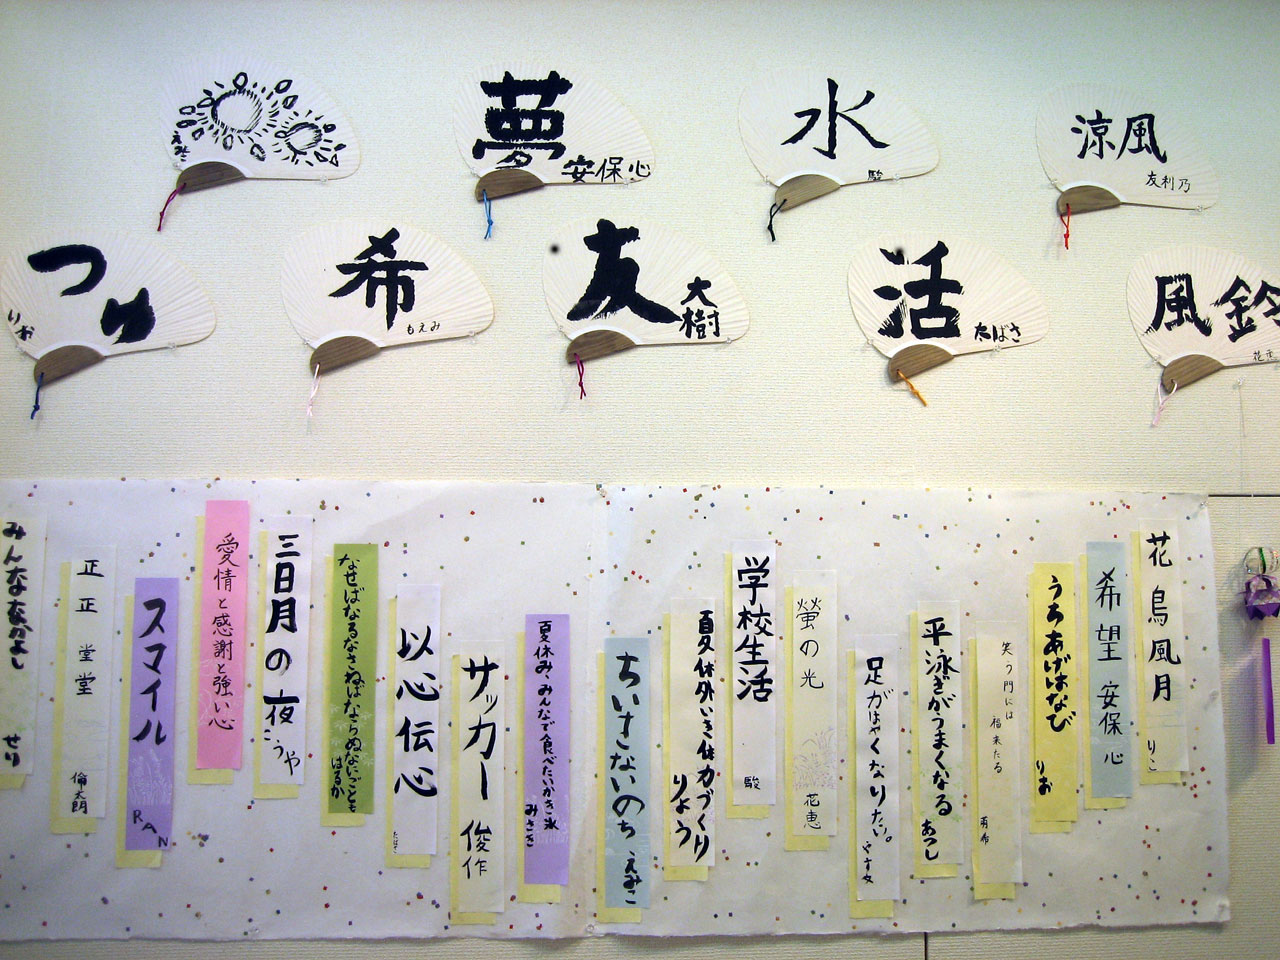 夢
安保心
水
駿
涼風
友利乃
つゆ
りお
希
もえみ
友
大樹
活
たばさ
風鈴
花鳥風月
りこ
希望
安保心
うちあげはなび
りお
笑う門には
福来たる
平泳ぎがうまくなる
あつし
足がはやくなりたい。
螢の光
花恵
学校生活
駿
夏休外いき体力づくり
りょう
ちいさないのち
えみこ
夏休み、みんなで食べたいかき氷
みさき
サッカー
俊作
以心伝心
たばさ
なせばなるなさねばならぬないごとも
はるか
三日月の夜
こうや
愛情と感謝と強い心
スマイル
RAN
正正堂堂
倫太朗
みんななかよし
せり